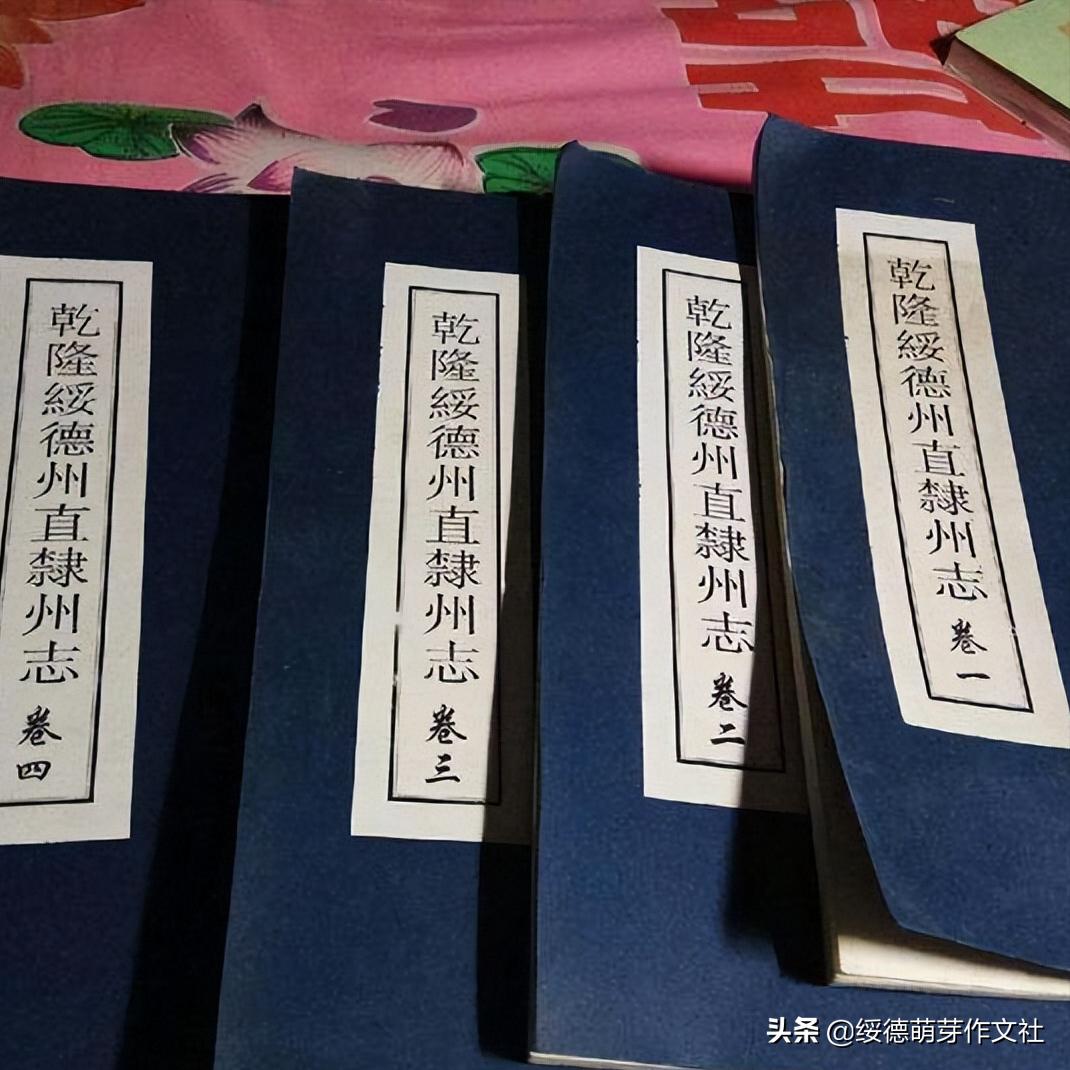 乾隆綏德州直隸州志 卷一
乾隆綏德州直隸州志 卷二
乾隆綏德州直隸州志 卷三
乾隆綏德州直隸州志 卷四
头条 @绥德萌芽作文社